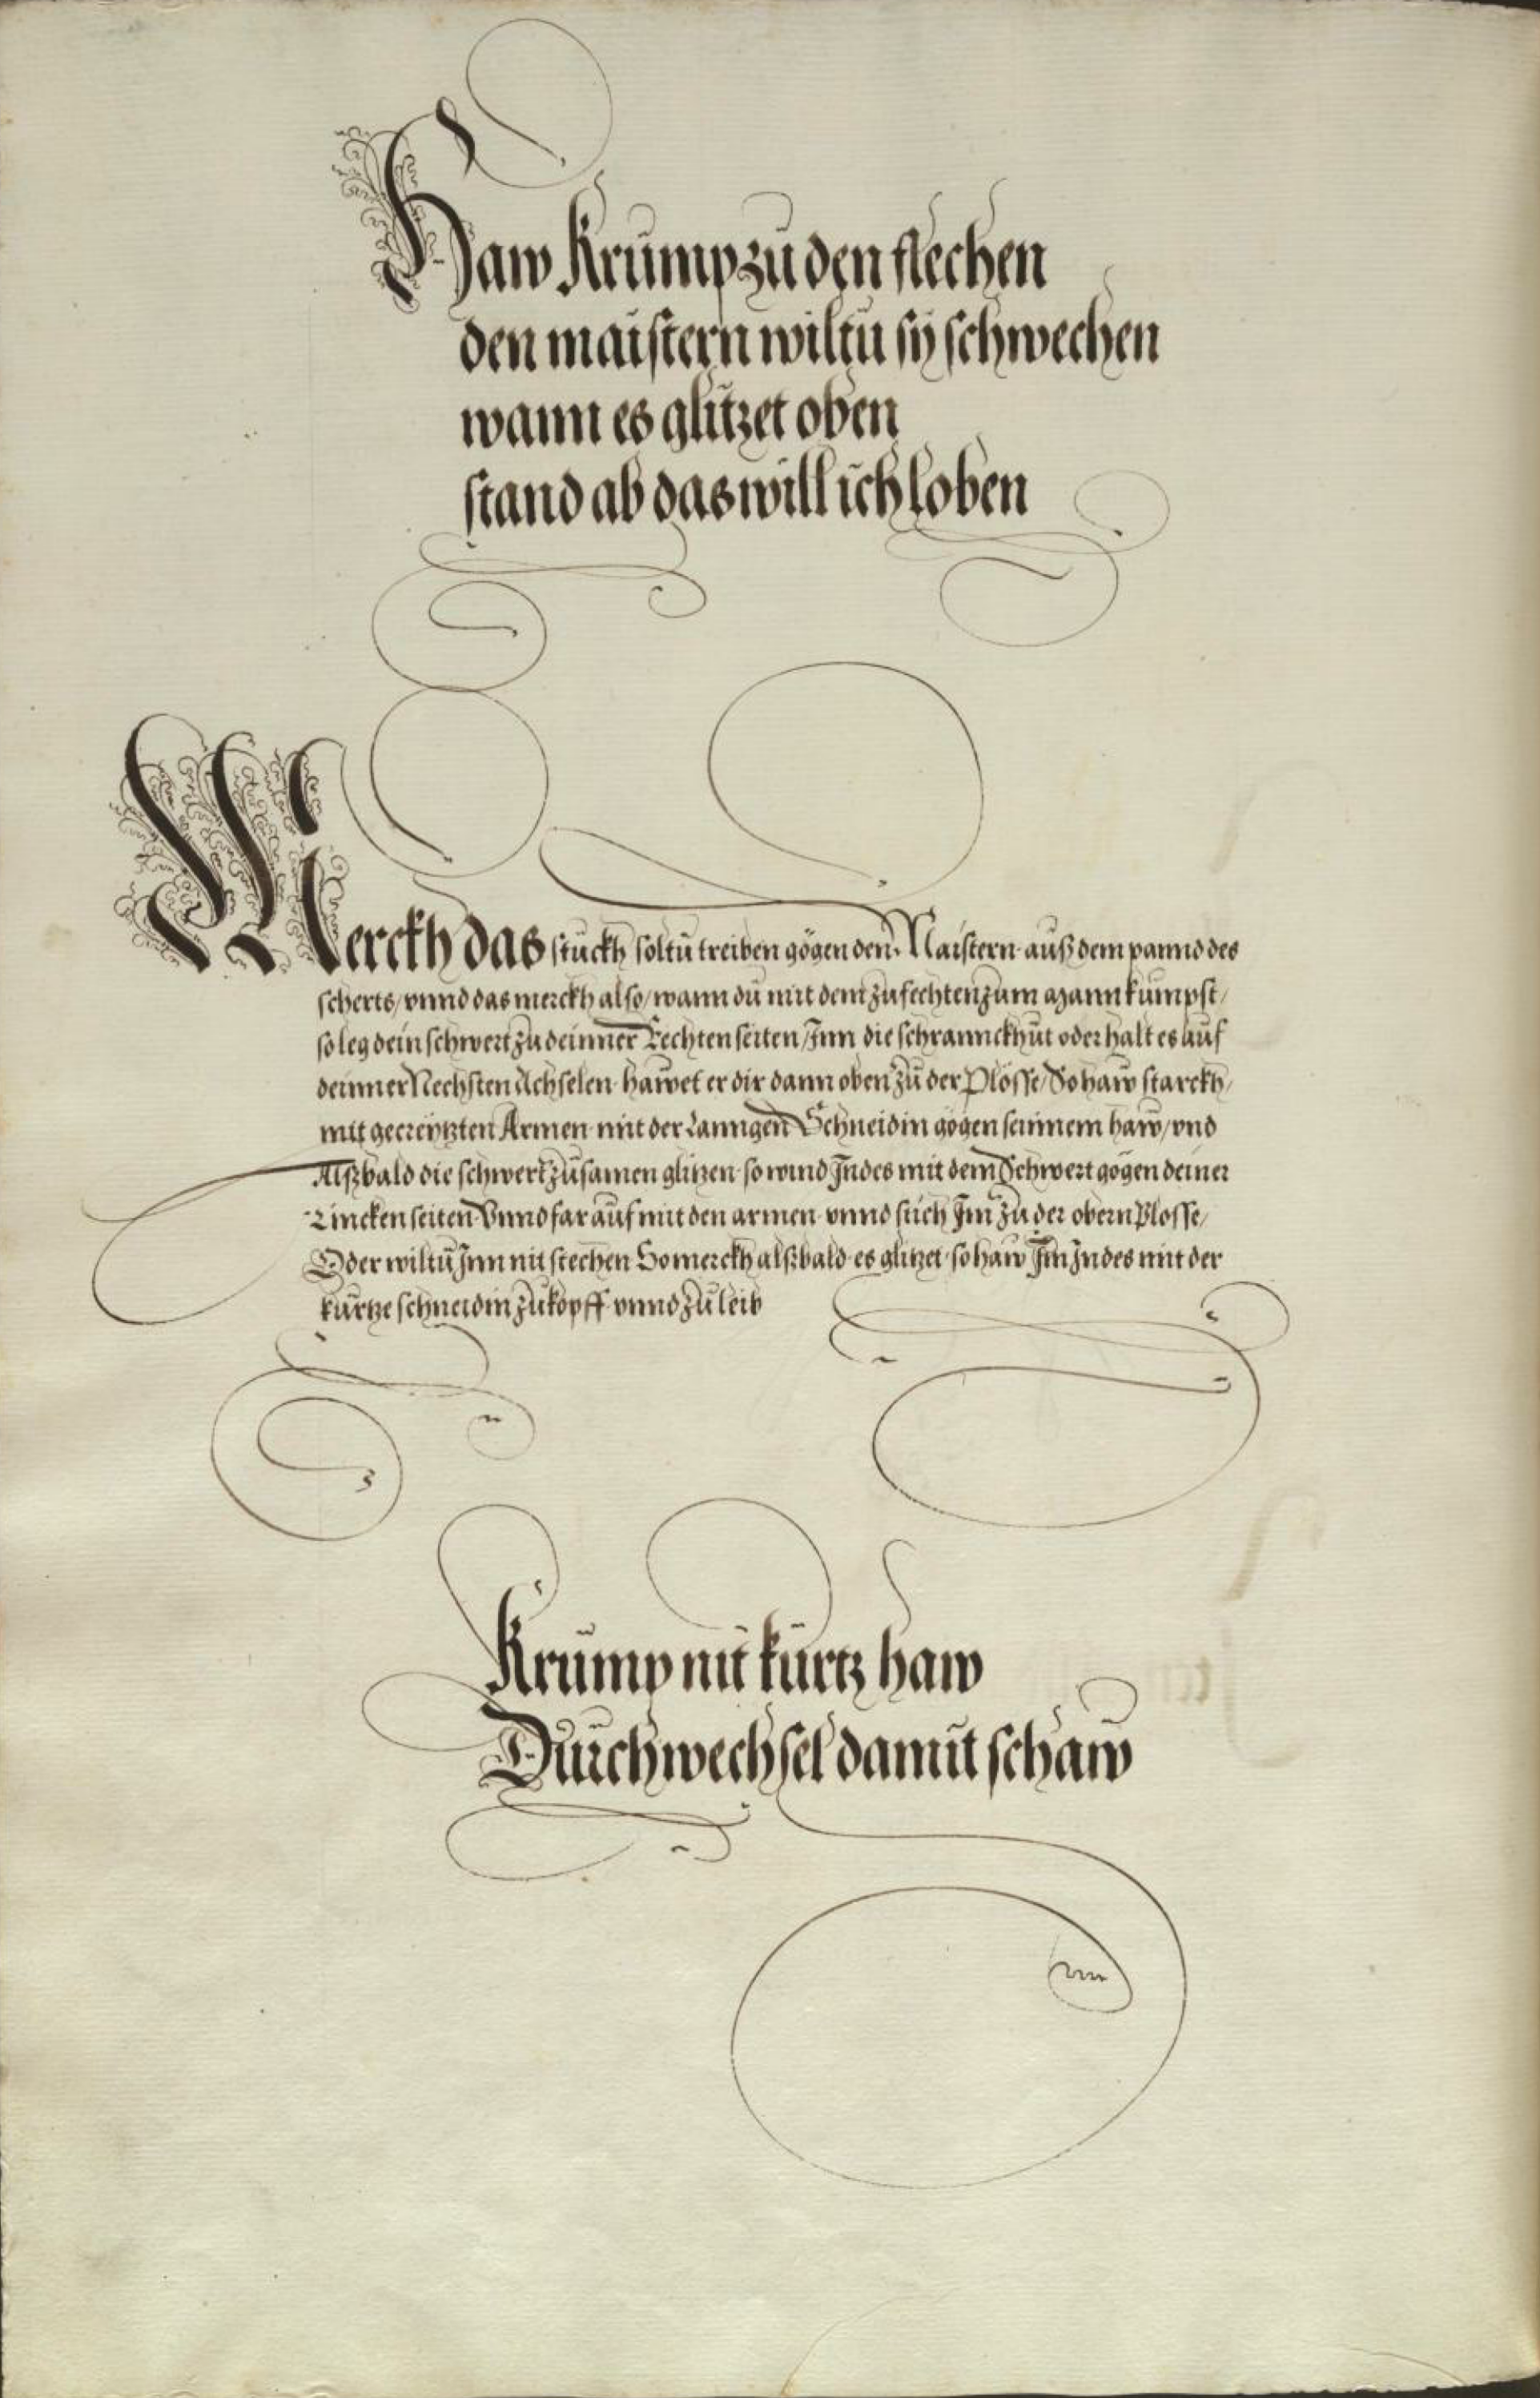 Haw Krump zu den flechen
den maistern wiltu sy schwechen
wann es glitzet oben
stand ab das will ich loben
Merckh das stuckh soltu treiben gögen den Maistern auß dem pannd des
scherts / vnnd das merckh also / wann du mit dem zufechten zum Mann kumpst /
so leg dein schwert zu deinner Rechten seiten / Inn die schranckhut oder halt es auf
deinner Rechsten Achselen hawet er dir dann oben zu der Plösse / So haw starckh /
mit gecreytzten Armen mit der Lanngen Schneidin gögen seinnem haw / vnd
Alßbald die schwert zusamen glitzen so wind Indes mit dem Schwert gögen deiner
Lincken seiten Vnnd far auf mit den armen vnnd stich Im zu der obern Plosse /
Oder wiltu Inn nit stechen So merckh alßbald es glitzet so haw Im Indes mit der
kurtze schneidin zu kopff vnnd zu leib
Krump nit kurtz haw
Durchwechsel damit schaw